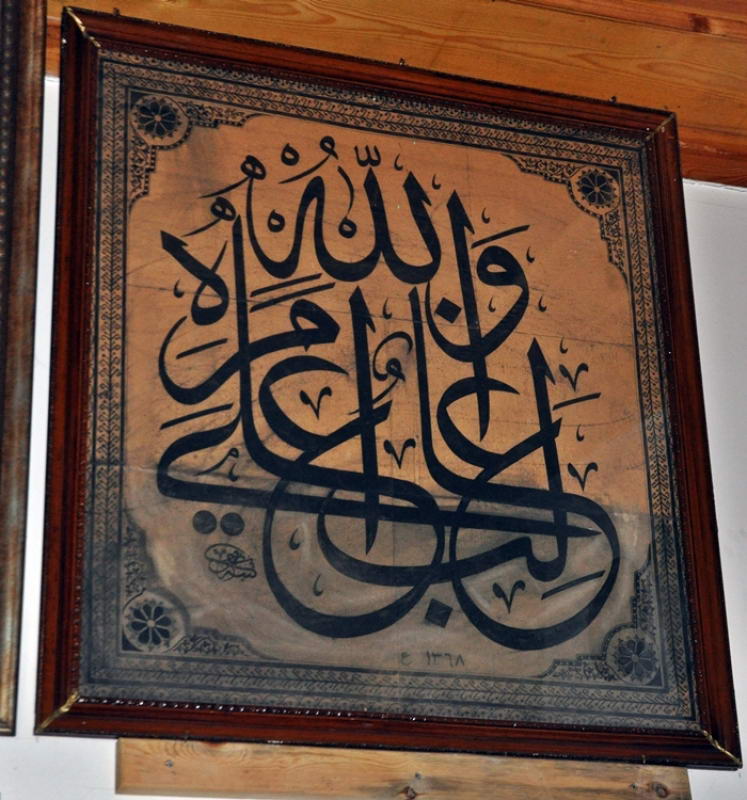 والله غالب على أمره
١٣٦٨